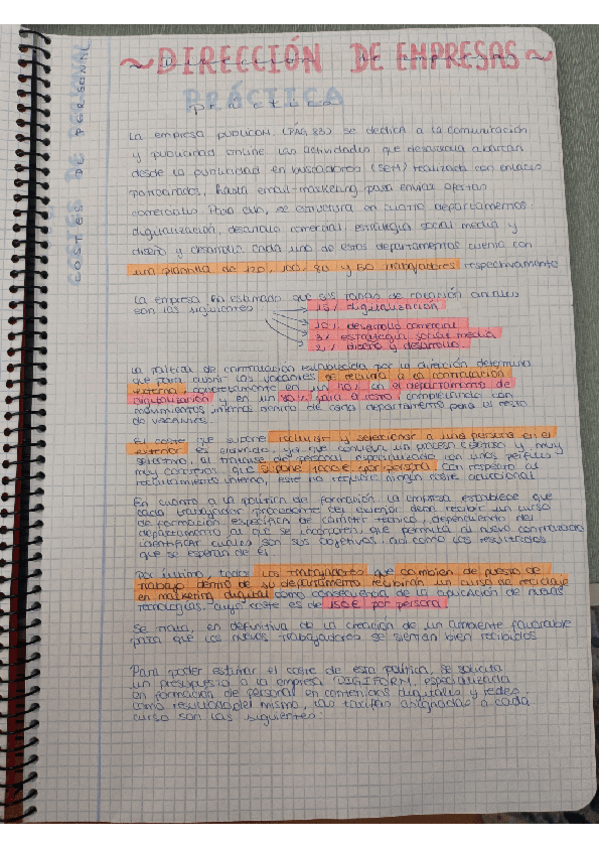 ~DIRECCIÓN DE EMPRESAS~
PRÁCTICA
COSTES DE PERSONAL
La empresa PUBLICOM (PÁG 88) se dedica a la comunicación
y publicidad online. Las actividades que desarrolla abarcan
desde la publicidad en buscadores (SEM) realizada con enlaces
patrocinados, hasta email-marketing para enviar ofertas
comerciales. Para ello, se estructura en cuatro departamentos
digitalización, desarrollo comercial, estrategia social media y
diseño y desarrollo. Cada uno de estos departamentos cuenta con
una plantilla de 120, 100, 80 y 50 trabajadores respectivamente
La empresa ha estimado que sus tasas de rotación anuales
son las siguientes
15% digitalización
10% desarrollo comercial
3% estrategia social media
2% diseño y desarrollo
La política de contratación establecida por la dirección determina
que para cubrir las vacantes se recurra a la contratación
externa, concretamente en un 90% en el departamento de
digitalización y en un 80% para el resto, completando con
movimientos internos dentro de cada departamento para el resto
de vacantes.
El coste que supone reclutar y seleccionar a una persona en el
exterior es elevado, ya que conlleva un proceso costoso y muy
selectivo, al tratarse de personal especializado con unos perfiles
muy concretos, que supone por persona. Con respecto al
reclutamiento interno, este no requiere ningún coste adicional
En cuanto a la política de formación, la empresa establece que
cada trabajador procedente del exterior debe recibir un curso
de formación específica de carácter técnico, dependiendo del
departamento al que se incorpore, que permita al nuevo contratado
identificar cuáles son sus objetivos, así como los resultados
que se esperan de él.
Por último, todos los trabajadores que cambien de puesto de
trabajo dentro de su departamento recibirán un curso de reciclaje
en marketing digital como consecuencia de la aplicación de nuevas
tecnologías, cuyo coste es de 150€ por persona
Se trata, en definitiva de la creación de un ambiente favorable
para que los nuevos trabajadores se sientan bien recibidos
Para poder estimar el coste de esta política, se solicita
un presupuesto a la empresa DIGIFORM, especializada
en formación de personal en contenidos digitales y redes
como resultado del mismo, las tarifas asignadas a cada
curso son las siguientes: